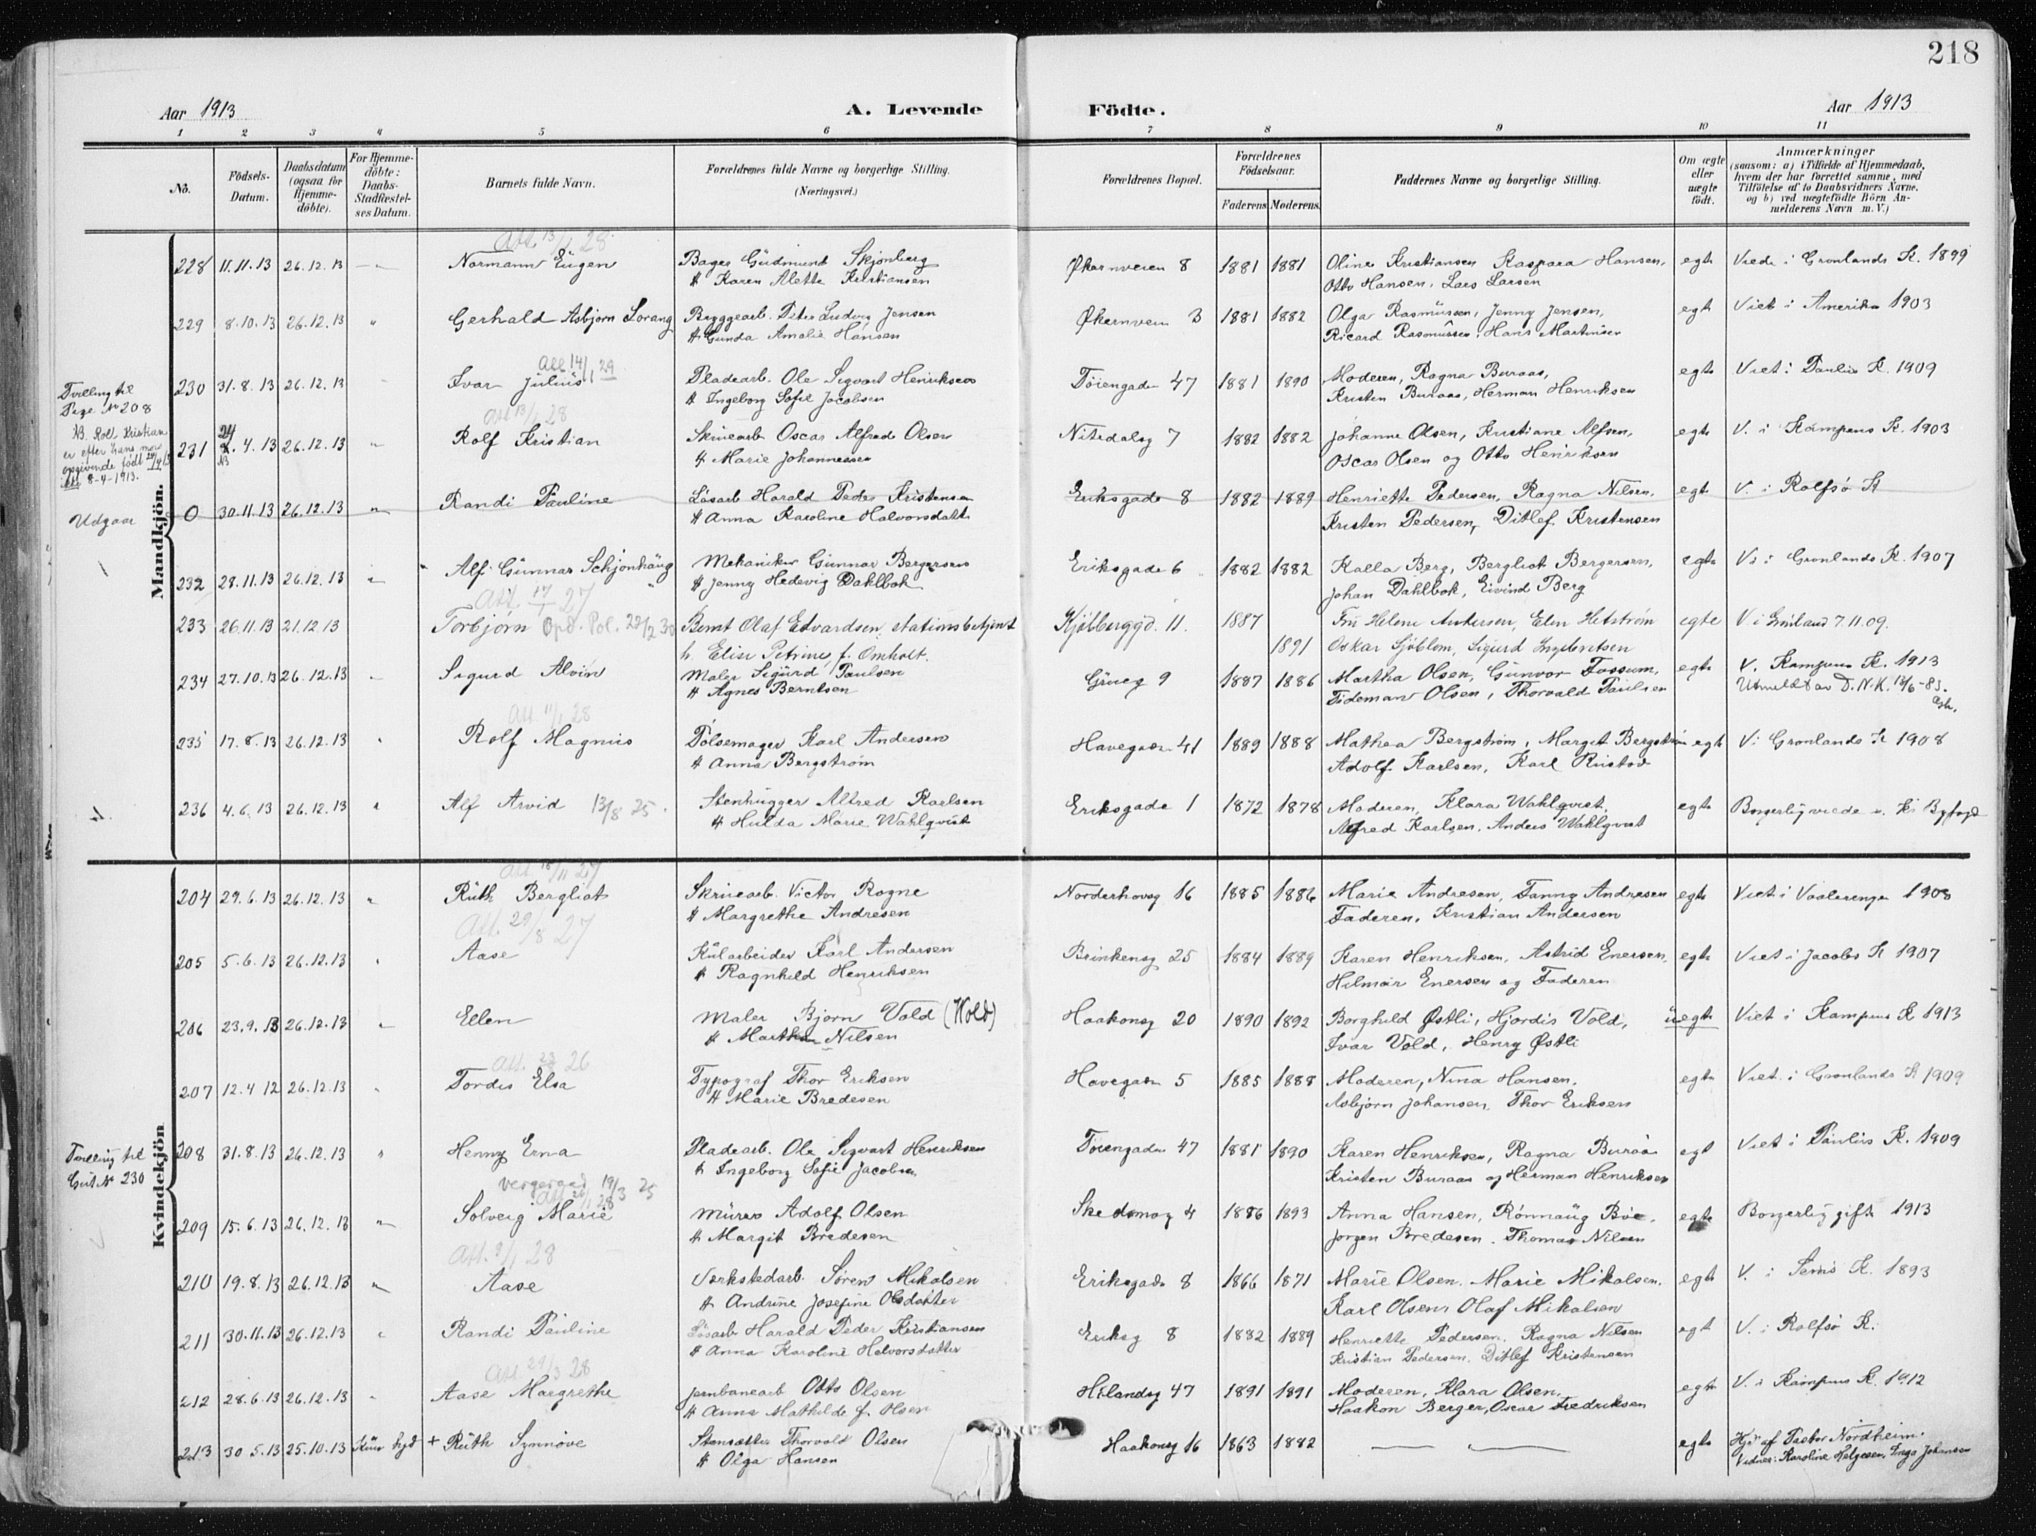 218
Aar 1913 A. Levende Födte. Aar 1913
1 2 3 4 5 6 7 8 9 10 11
No. Födsels-Datum. Daabsdatum (ogsaa for Hjemme-döbte). For Hjemme-döbte: Daabs-Stadfæstel-ses Datum. Barnets fulde Navn. Forældrenes fulde Navne og borgerlige Stilling. (Næringsvei.) Forældrenes Bopæl. Forældrenes Födselsaar. Faderens. Moderens. Faddernes Navne og borgerlige Stilling. Om ægte eller uægte födt. Anmærkninger (saasom: a) i Tilfælde af Hjemmedaab, hvem der har forrettet samme, med Tilföielse af to Daabsvidners Navne, og b) ved uægtefödte Börn An-melderens Navn m. V.)
Mandkjön.
Att. 13/1 28
228 11.11.13 26.12.13 Normann Eugen Bager Gudmund Skjønberg Økernveien 8 1881 1881 Oline Kristiansen Kaspara Hansen, egte Viede i Grønlands K. 1899
H Karen Alette Kristiansen Otto Hansen, Lars Larsen
229 8.10.13 26.12.13 " Gerhald Asbjørn Lorang Bryggearb. Peter Ludvig Jensen Økernveien 3 1881 1882 Olga Rasmussen, Jenny Jensen, egte Viet i Amerika 1903
H Gunda Amalie Hansen Ricard Rasmussen, Hans Martinsen
Att 14/1 29
Tvilling til Pige No 208 230 31.8.13 26.12.13 Ivar Julius Pladearb. Ole Sigvart Henriksen Tøiengaden 47 1881 1890 Moderen, Ragna Buraas, egte Viet i Paulus K. 1909
H Ingeborg Sofie Jacobsen Kristen Buraas, Herman Henriksen
Att 13/1 28
NB. Rolf Kristian er efter hans mors opgivende født 24/4 13 ikke 8-4-1913.
231 24.4.13 NB 26.12.13 " Rolf Kristian Skruearb Oscar Alfred Olsen Nitedalsg 7 1882 1882 Johanne Olsen, Kristiane Alfsen, egte V. i Kampens K. 1903
H Marie Johannessen Oscar Olsen og Otto Henriksen
Udgaar 0 30.11.13 26.12.13 " Randi Pauline Løsarb Harald Peder Kristensen Eriksgade 8 1882 1889 Henriette Pedersen, Ragna Nilsen, egte V. i Rolfsø K
H Anna Karoline Halvorsdatt Kristen Pedersen, Ditlef Kristensen
232 28.11.13 26.12.13 " Alf Gunnar Schjønhaug Mekaniker Gunnar Bergersen Eriksgade 6 1882 1882 Kalla Berg, Bergliot Bergersen, egte V. i Grønlands K. 1907
H Jenny Hedevig Dahlbok Johan Dahlbok, Eivind Berg
Att 17/1 27
233 26.11.13 21.12.13 Torbjørn Opd. Pol. 20/2 30 Bernt Olaf Edvardsen, stationsbetjent Kjølberggd. 11. 1887 Fru Helene Andersen, Elen Hetstrøm egte V i Grønland 7.11.09.
h. Elise Petrine f. Omholt. 1891 Oskar Sjøblom, Sigurd
234 27.10.13 26.12.13 Sigurd Alvin Maler Sigurd Paulsen Grueg 9 1887 1886 Martha Olsen, Gunvor Fossum, egte V. Kampens K. 1913
H Agnes Berntsen Tideman Olsen, Thorvald Paulsen Utmeldt av D.N.K. 13/6-83.
Att 11/1 28
235 17.8.13 26.12.13 " Rolf Magnus Pølsemager Karl Andersen Havegaden 41 1889 1888 Mathea Bergstrøm, Margit Bergstrøm egte V. i Grønlands K 1908
H Anna Bergstrøm Adolf Karlsen, Karl Rustad
236 4.6.13 26.12.13 " Alf Arvid 13/8 25. Stenhugger Alfred Karlsen Eriksgade 1 1872 1878 Moderen, Klara Wahlqvist, egte Borgerlig viede i Kr. Byfogd
H Hulda Marie Wahlqvist Alfred Karlsen, Anders Wahlqvist
Kvindekjön
Att 18/11 27
204 29.6.13 26.12.13 " Ruth Bergliot Skruearb. Victor Ragne Norderhovsg 16 1885 1886 Marie Andresen, Fanny Andresen egte Viet i Vaalerengen 1908
H Margrethe Andresen Faderen, Kristian Andersen
Att. 29/8 27
205 5.6.13 26.12.13 " Aase Kularbeider Karl Andersen Brinkensg 25 1884 1889 Karen Henriksen, Astrid Enersen, egte Viet i Jacobs K 1907
H Ragnhild Henriksen Hilmar Enersen og Faderen
206 23.9.13 26.12.13 " Ellen Maler Bjørn Vold (Wold) Haakonsg 20 1890 1892 Borghild Østli, Hjørdis Vold, uegte Viet i Kampens K 1913
H Martha Nilsen Ivar Vold, Henry Østli
Att. 23 26
207 12.4 12 26.12.13 " Tordis Elsa Typograf Thor Eriksen Havegaden 5 1885 1888 Moderen, Nina Hansen, egte Viet. i Grønlands K 1909
H Marie Bredesen Asbjørn Johansen, Thor Eriksen
Tvilling til Gut No 230 208 31.8.13 26.12.13 " Henny Erna Pladearb. Ole Sigvart Henriksen Tøiengaden 47 1881 1890 Karen Henriksen, Ragna Buraas egt Viet i Paulus K. 1909
H Ingeborg Sofie Jacobsen Kristen Buraas og Herman Henriksen
19/3 25
209 15.6.13 26.12.13 " Solveig Marie Murer Adolf Olsen Skedsmog 4 1886 1893 Anna Hansen, Rønnaug Bøe, egte Borgerlig gift 1913
H Margit Bredesen Jørgen Bredesen, Thomas Nilsen
Att. 9/1 28
210 19.8.13 26.12.13 " Aase Verkstedarb. Søren Mikalsen Eriksgade 8 1866 1871 Marie Olsen, Marie Mikalsen, egte V. i Sems K. 1893
H Andrine Josefine Olsdatter Karl Olsen, Olaf Mikalsen
211 30.11.13 26.12.13 " Randi Pauline Løsarb Harald Peder Kristiansen Eriksg 8 1882 1889 Henriette Pedersen, Ragna Nilsen egt V. i Rolfsø K.
H Anna Karoline Halvorsdatter Kristian Pedersen, Ditlef Kristensen
Att 29/3 28
212 28.6.13 26.12.13 " Aase Margrethe Jernbanearb Otto Olsen Hølandsg 47 1891 1891 Moderen, Klara Olsen, egte V. i Kampens K. 1912
H Anna Mathilde f. Olsen Haakon Berger, Oscar Fredriksen
213 30 5.13 25.10.13 Kun hjd + Ruth Synnøve Stensætter Thorvald Olsen Haakonsg 16 1863 1882 egte Hjd af Pastor Nordheim.
H Olga Hansen Vidner: Karoline Helgesen, Inga Johansen